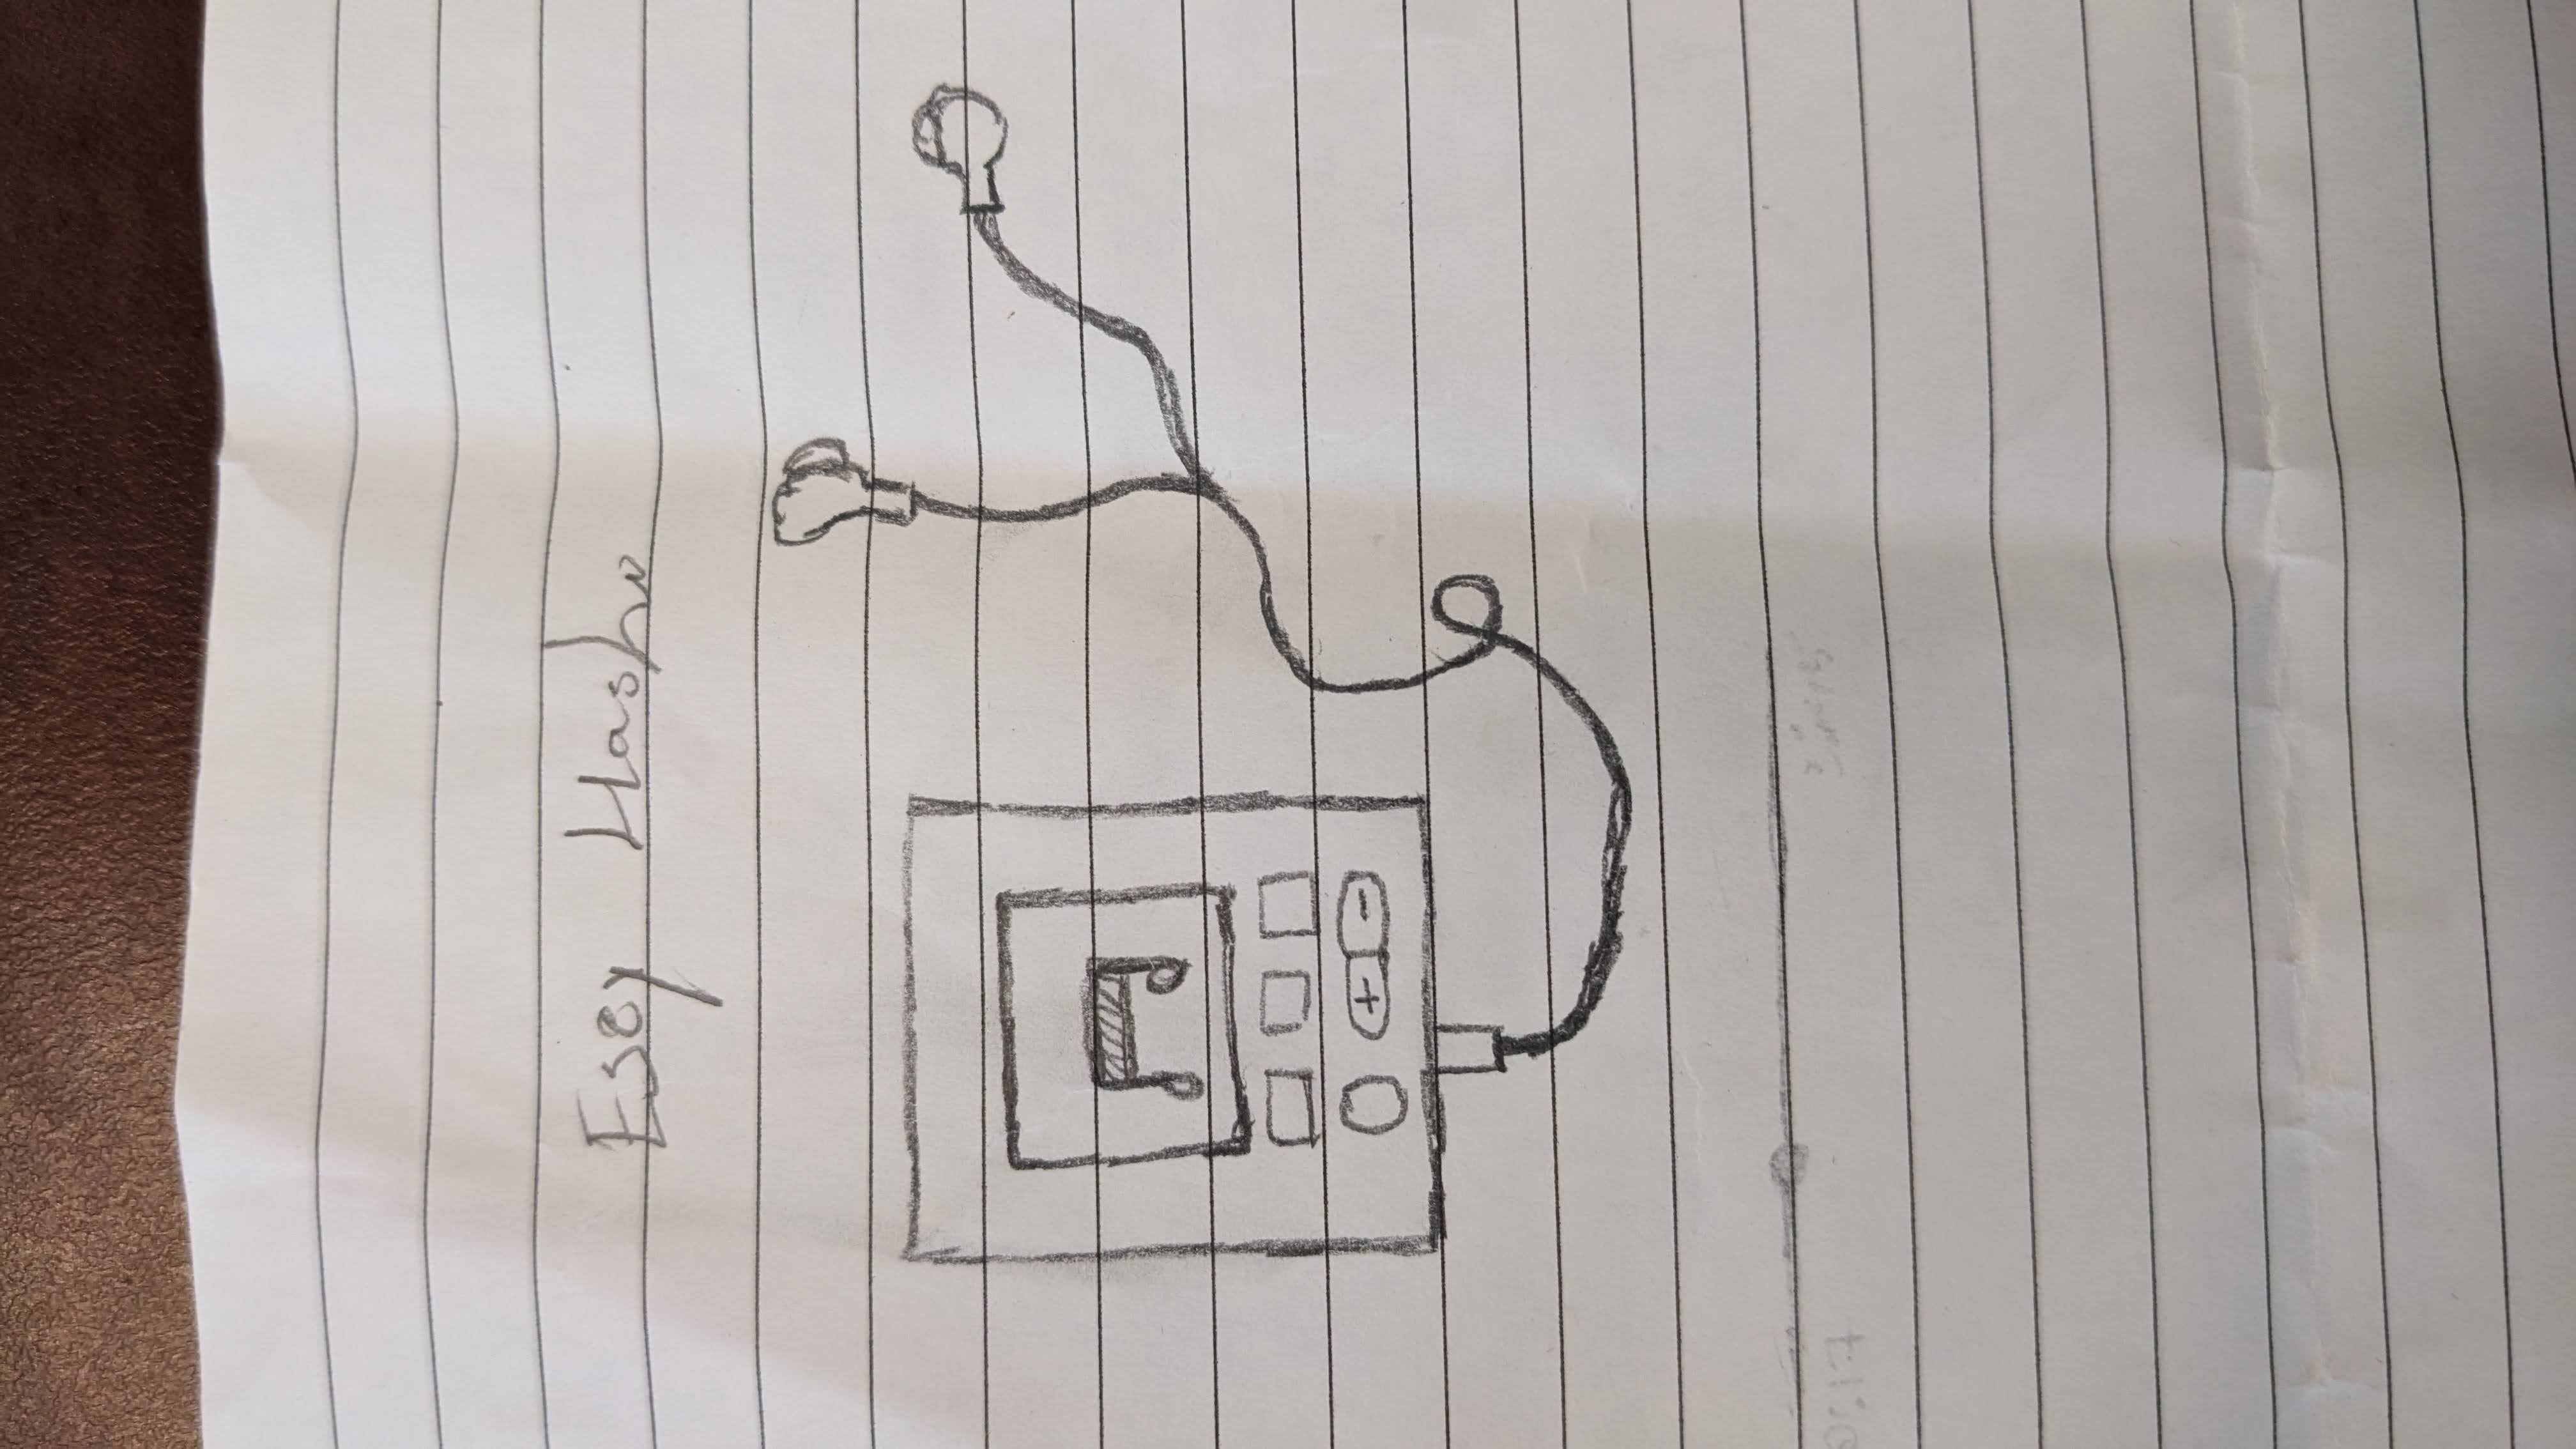 Esey Hashu
+ -